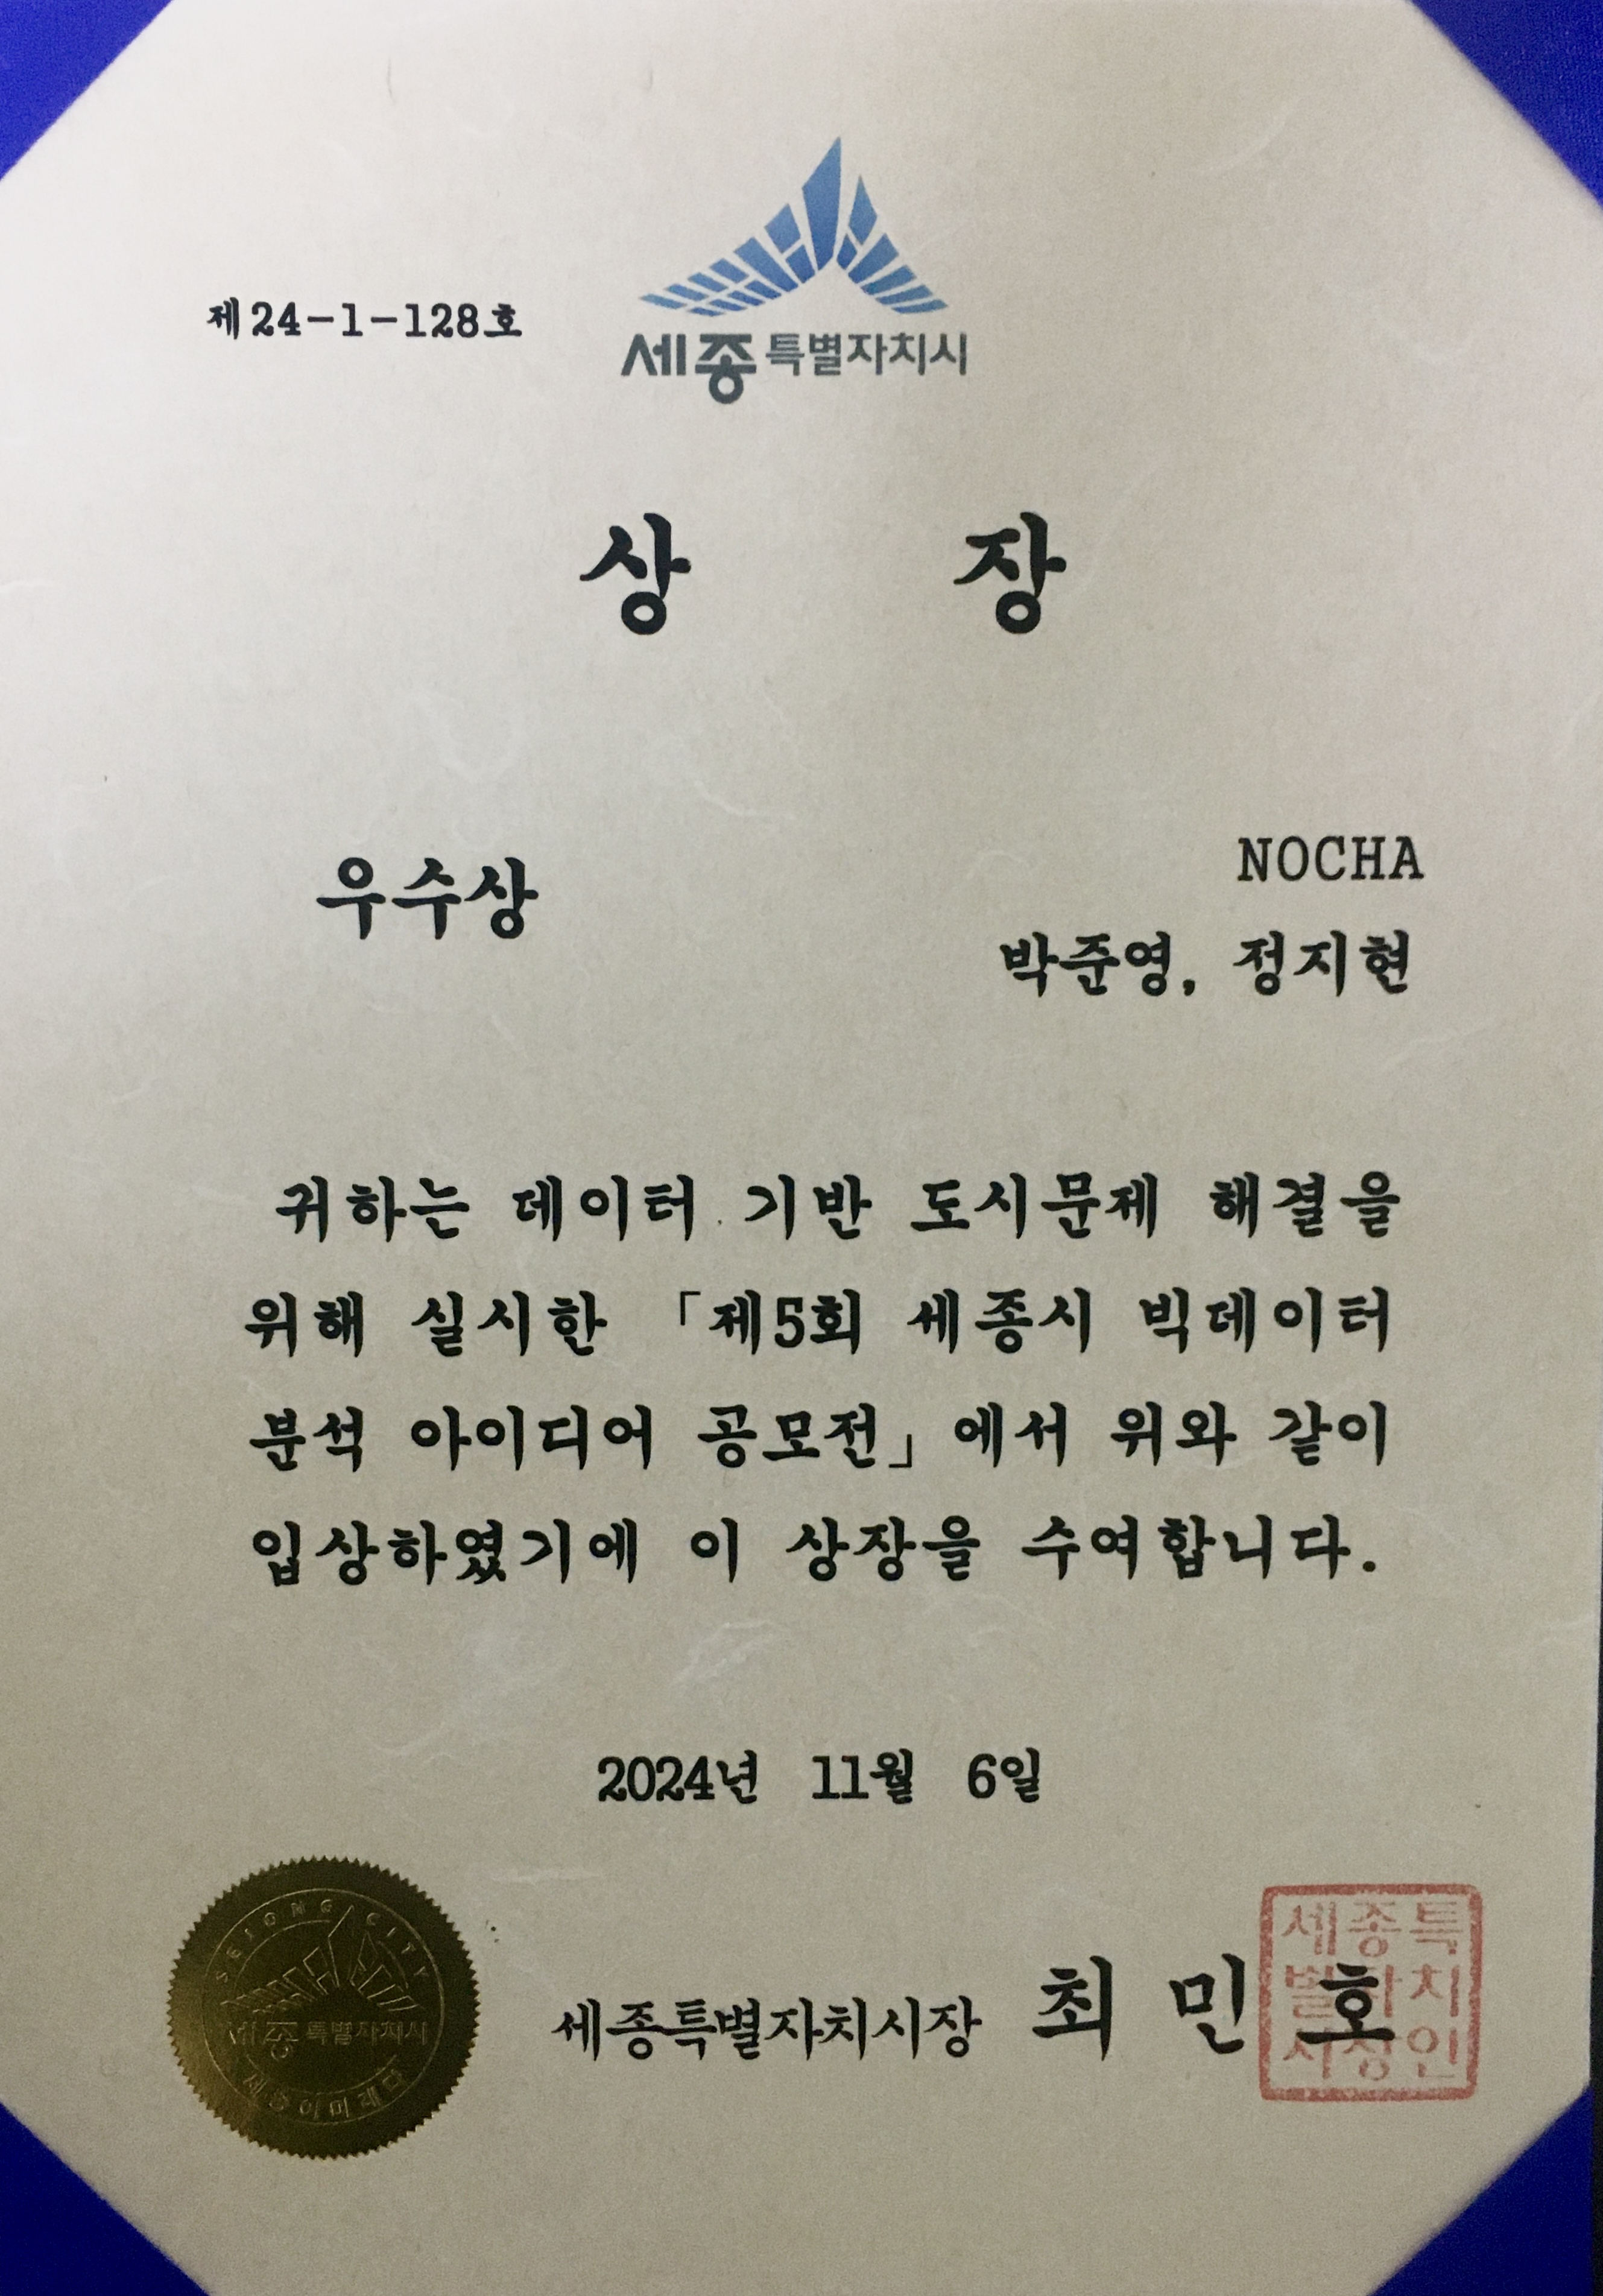 제24-1-128호
세종특별자치시
상 장
우수상
NOCHA
박준영, 정지현
귀하는 데이터 기반 도시문제 해결을
위해 실시한 「제5회 세종시 빅데이터
분석 아이디어 공모전」에서 위와 같이
입상하였기에 이 상장을 수여합니다.
2024년 11월 6일
SEJONG CITY
세종특별자치시
세종이미래다
세종특별자치시장 최민호
세종특
별자치
시장인